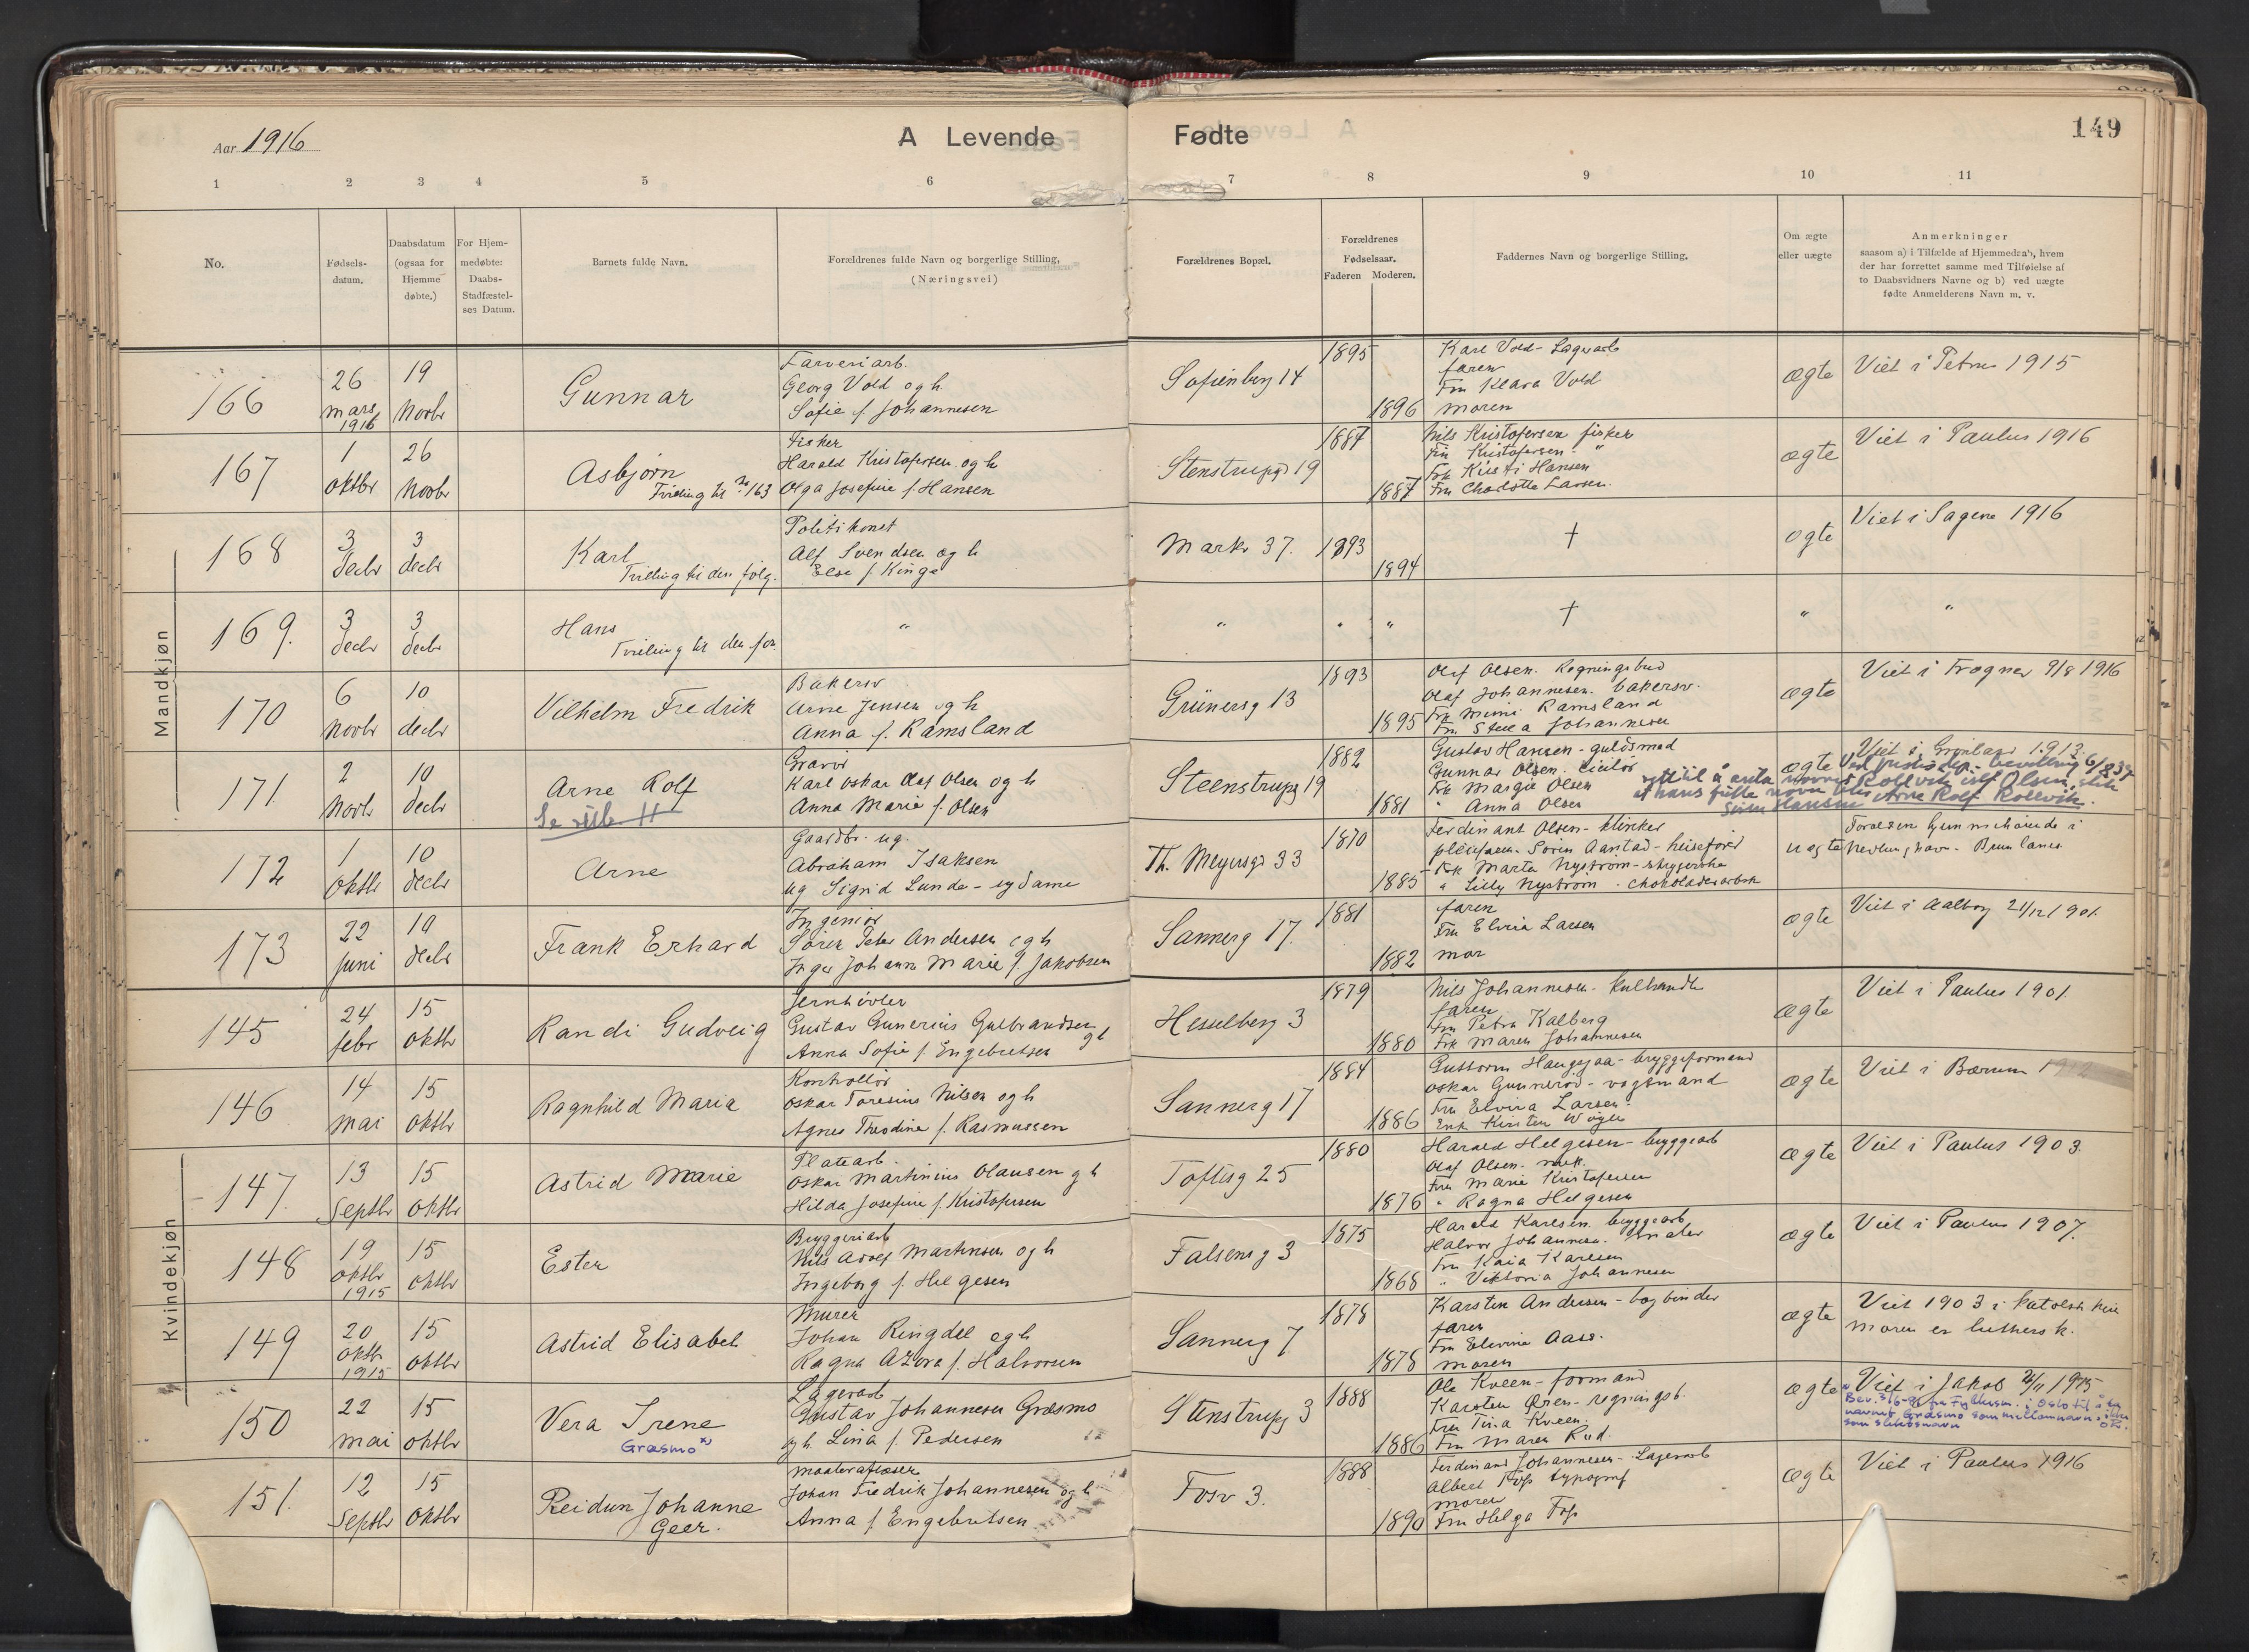 Aar 1916
A Levende
Fødte
149
1 2 3 4 5 6 7 8 9 10 11
No.
Fødsels-
datum.
Daabsdatum
(ogsaa for
Hjemme
døbte.)
For Hjem-
medøbte:
Daabs-
Stadfæstel-
ses Datum.
Barnets fulde Navn.
Forældrenes fulde Navn og borgerlige Stilling,
(Næringsvei)
Forældrenes Bopæl.
Forældrenes
Fødselsaar.
Faderen Moderen.
Faddernes Navn og borgerlige Stilling.
Om ægte
eller uægte
Anmerkninger
saasom a) i Tilfælde af Hjemmedaab, hvem
der har forrettet samme med Tilføielse af
to Daabsvidners Navne og b) ved uægte
fødte Anmelderens Navn m. v.
Mandkjøn
166
26
mars
1916
19
Novbr
Gunnar
Farveriarb.
Georg Vold og h
Sofie f. Johannesen
Sofienberg 14
1895
1896
Karl Vold - Lagerarb
faren
Fru Klara Vold
moren
ægte
Viet i Petrus 1915
167
1
oktbr
26
Novbr
Asbjørn
Tvilling til No 163
Fisker
Harald Kristofersen og h
Olga Josefine f. Hansen
Stenstrupg 19
1887
1887
Nils Kristofersen fisker
Fru Kristofersen "
Frk Kirsti Hansen
Fru Charlotte Larsen.
ægte
Viet i Paulus 1916
168
3
decbr
3
decbr
Karl
Tvilling til den følg.
Politikonst
Alf Svendsen og h
Else f. Kinge
Markv 37.
1893
1894
†
ægte
Viet i Sagene 1916
169.
3
decbr
3
decbr
Hans
Tvilling til den for.
"
" " "
†
"
"
170
6
Novbr
10
decbr
Vilhelm Fredrik
Bakersv
Arne Jensen og h
Anna f. Ramsland
Grünersg 13
1893
1895
Olaf Olsen. Regningsbud
Olaf Johannesen. bakersv.
Frk Mimi Ramsland
Fru Stella Johannesen
ægte
Viet i Frogner 9/8 1916
171.
2
Novbr
10
decbr
Arne Rolf
Gravør
Karl Oskar Olaf Olsen og h
Anna Marie f. Olsen
Steenstrupg 19
1882
1881
Gustav Hansen - guldsmed
Gunnar Olsen. ciselør
Frk Margit Olsen
" Anna Olsen
ægte
Viet i Grønland 1913.
Arne Rolf Rollvik.
172
1
oktbr
10
decbr
Arne
Gaardbr. ug.
Abraham Isaksen
ug Sigrid Lunde - sydame
Th. Meyersgt 33
1870
1885
Ferdinant Olsen - klinker
Soren Aanstad - heisefører
Frk Marta Nystrøm -
" Lilly Nystrøm - chokoladearbsk
uægte
173
22
juni
10
decbr
Frank Erhard
Ingeniør
Sören Peter Andersen og h
Inger Johanne Marie f. Jakobsen
Sannerg 17.
1881
1882
faren
Fru Elvira Larsen
mor
ægte
Viet i Aalborg 21/12 1901.
Kvindekjøn
145
24
febr
15
oktbr
Randi Gudveig
Jernhøvler
Gustav Gunerius Gulbrandsen
og h
Anna Sofie f. Engebretsen
Hesselberg 3
1879
1880
Nils Johannesen - kulhandler
faren
Fru Petra Kalberg
Frk Maren Johannesen
ægte
Viet i Paulus 1901.
146
14
mai
15
oktbr
Ragnhild Maria
Kontrollør
Oskar Toresius Nilsen og h
Agnes Theodine f. Rasmussen
Sannerg 17
1884
1886
Guttorm Haugejaa - bryggeformand
Oskar Gunnerød - vognmand
Fru Elvira Larsen
Enk Kirsten
ægte
Viet i Bærum
147.
13
Septbr
15
oktbr
Astrid Marie
Platearb.
Oskar Martinius Olausen og h
Hilda Josefine f. Kristofersen
Toftesg 25
1880
1876
Harald Helgesen - bryggearb
Olaf Olsen. mek.
Fru Marie Kristofersen
" Ragna Helgesen
ægte
Viet i Paulus 1903.
148
19
oktbr
1915
15
oktbr
Ester
Bryggeriarb
Nils Adolf Martinsen og h
Ingeborg f. Helgesen
Falseng 3
1875
1868
Harald Karlsen. bryggearb
Halvor Johannesen. maler
Fru Kaia Karlsen
" Viktoria Johannesen
ægte
Viet i Paulus 1907.
149
20
oktbr
1915
15
oktbr
Astrid Elisabet
Murer
Johan Ringdal og h
Ragna Azora f. Halvorsen
Sannerg 7
1878
1878
Karsten Andersen - bogbinder
faren
Fru Elevine Aass.
moren
ægte
Viet 1903 i katolsk kirke
Moren er luthersk.
150
22
mai
15
oktbr
Vera Irene
Græsmo x)
Lagerarb
Gustav Johannesen Græsmo
og h. Lina f. Pedersen
Stenstrupg 3
1888
1886
Ole Kveen - formand
Karsten Øren - regningsb.
Fru Tina Kveen
Fru Maren Rud.
ægte
Viet i Jakob 1915
navnet Græsmo som mellomnavn, ikke
som slektsnavn
151.
12
Septbr
15
oktbr
Reidun Johanne
Geer.
Maaleravlæser
Johan Fredrik Johannesen og h
Anna f. Engebretsen
Fosv 3.
1888
1890
Ferdinand Johannesen - Lagerarb
Albert Foss typograf
moren
Fru Helga Foss
ægte
Viet i Paulus 1916